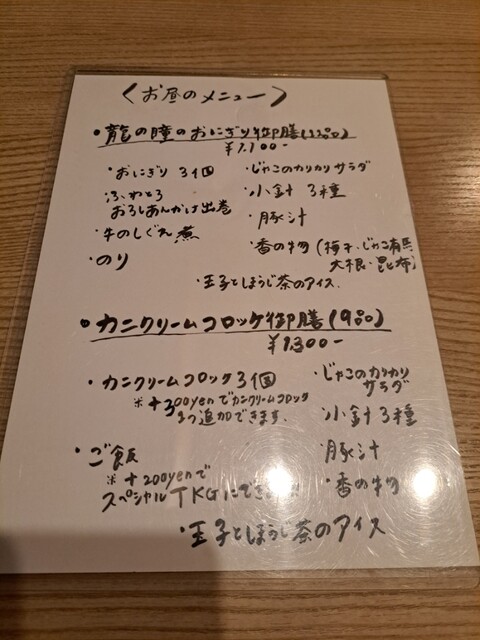 〈お昼のメニュー〉
・龍の瞳のおにぎり御膳(12品)
¥1,100-
・おにぎり 3個
・じゃこのカリカリサラダ
ふわとろ
おろしあんかけ出巻
・小鉢 3種
・豚汁
・牛のしぐれ煮
・香の物(梅干・じゃこ有馬
大根・昆布)
・のり
・玉子とほうじ茶のアイス
・カニクリームコロッケ御膳(9品)
¥1,300-
・カニクリームコロッケ3個
※+300yenでカニクリームコロッケ
1つ追加できます。
・じゃこのカリカリ
サラダ
小鉢3種
・ご飯
※+200yenで
スペシャルTKGにできます
豚汁
・香の物
・玉子とほうじ茶のアイス